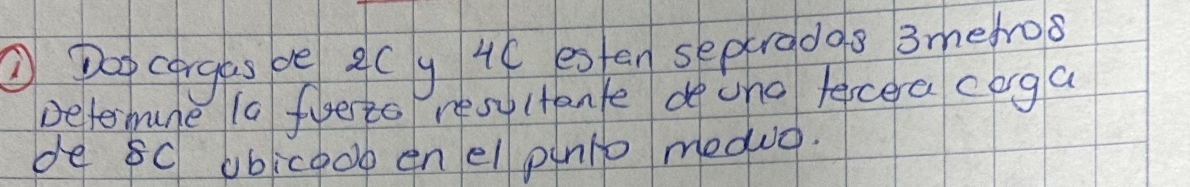 ① Dos cargas de 2C y 4C esten separadas 3metros
Determine la fuerza resultante de una tercera carga
de 8C ubicado en el punto medio.